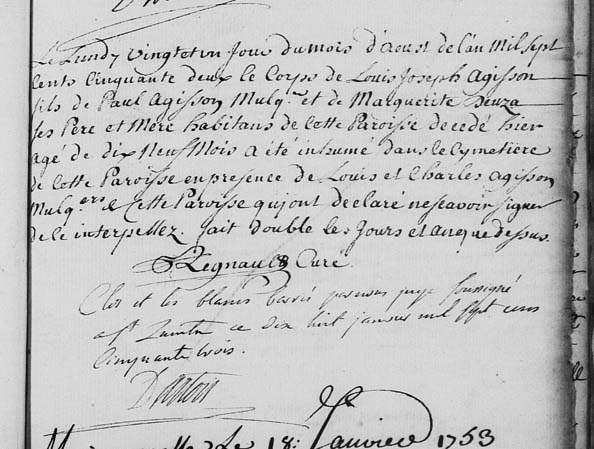 Le Lundy vingtetun Jour du mois d'Aoust de l'an Mil sept
Cents Cinquante deux le Corps de Louis Joseph Agisson
fils de Paul Agisson Mulq.er et de Marguerite
ses Pere et Mere habitans de Cette Paroisse decedé hier
agé de dix Neuf Mois a été inhumé dans le Cymetiere
de Cette Paroisse en presence de Louis et Charles Agisson
Mulq.ers de Cette Paroisse qui ont declaré ne scavoir signer
de ce interpellez. fait double les Jours et an que dessus.
Regnault Curé
Clos et les blancs barrés par nous juge soussigné
a St Quentin ce dix huit janvier mil sept cens
Cinquante trois.
Le 18: Janvier 1753